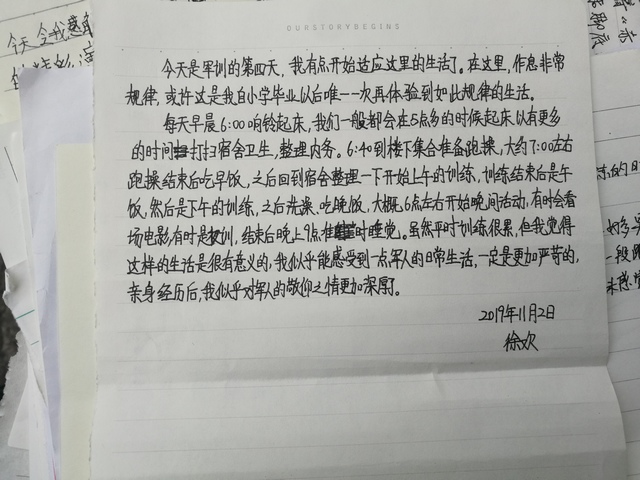 OURSTORYBEGINS
今天是军训的第四天，我有点开始适应这里的生活了。在这里，作息非常
规律，或许这是我自小学毕业以后唯一一次再体验到如此规律的生活。
每天早晨6:00响铃起床，我们一般都会在5点多的时候起床以有更多
的时间打扫宿舍卫生，整理内务。6:40到楼下集合准备跑操，大约7:00左右
跑操结束后吃早饭，之后回到宿舍整理一下开始上午的训练，训练结束后是午
饭，然后是下午的训练，之后洗澡、吃晚饭，大概6点左右开始晚间活动，有时会看
场电影有时是夜训，结束后晚上9点准时睡觉。虽然平时训练很累，但我觉得
这样的生活是很有意义的，我似乎能感受到一点军人的日常生活，一定是更加严苛的，
亲身经历后，我似乎对军人的敬仰之情更加深厚。
2019年11月2日
徐欢
今天令我